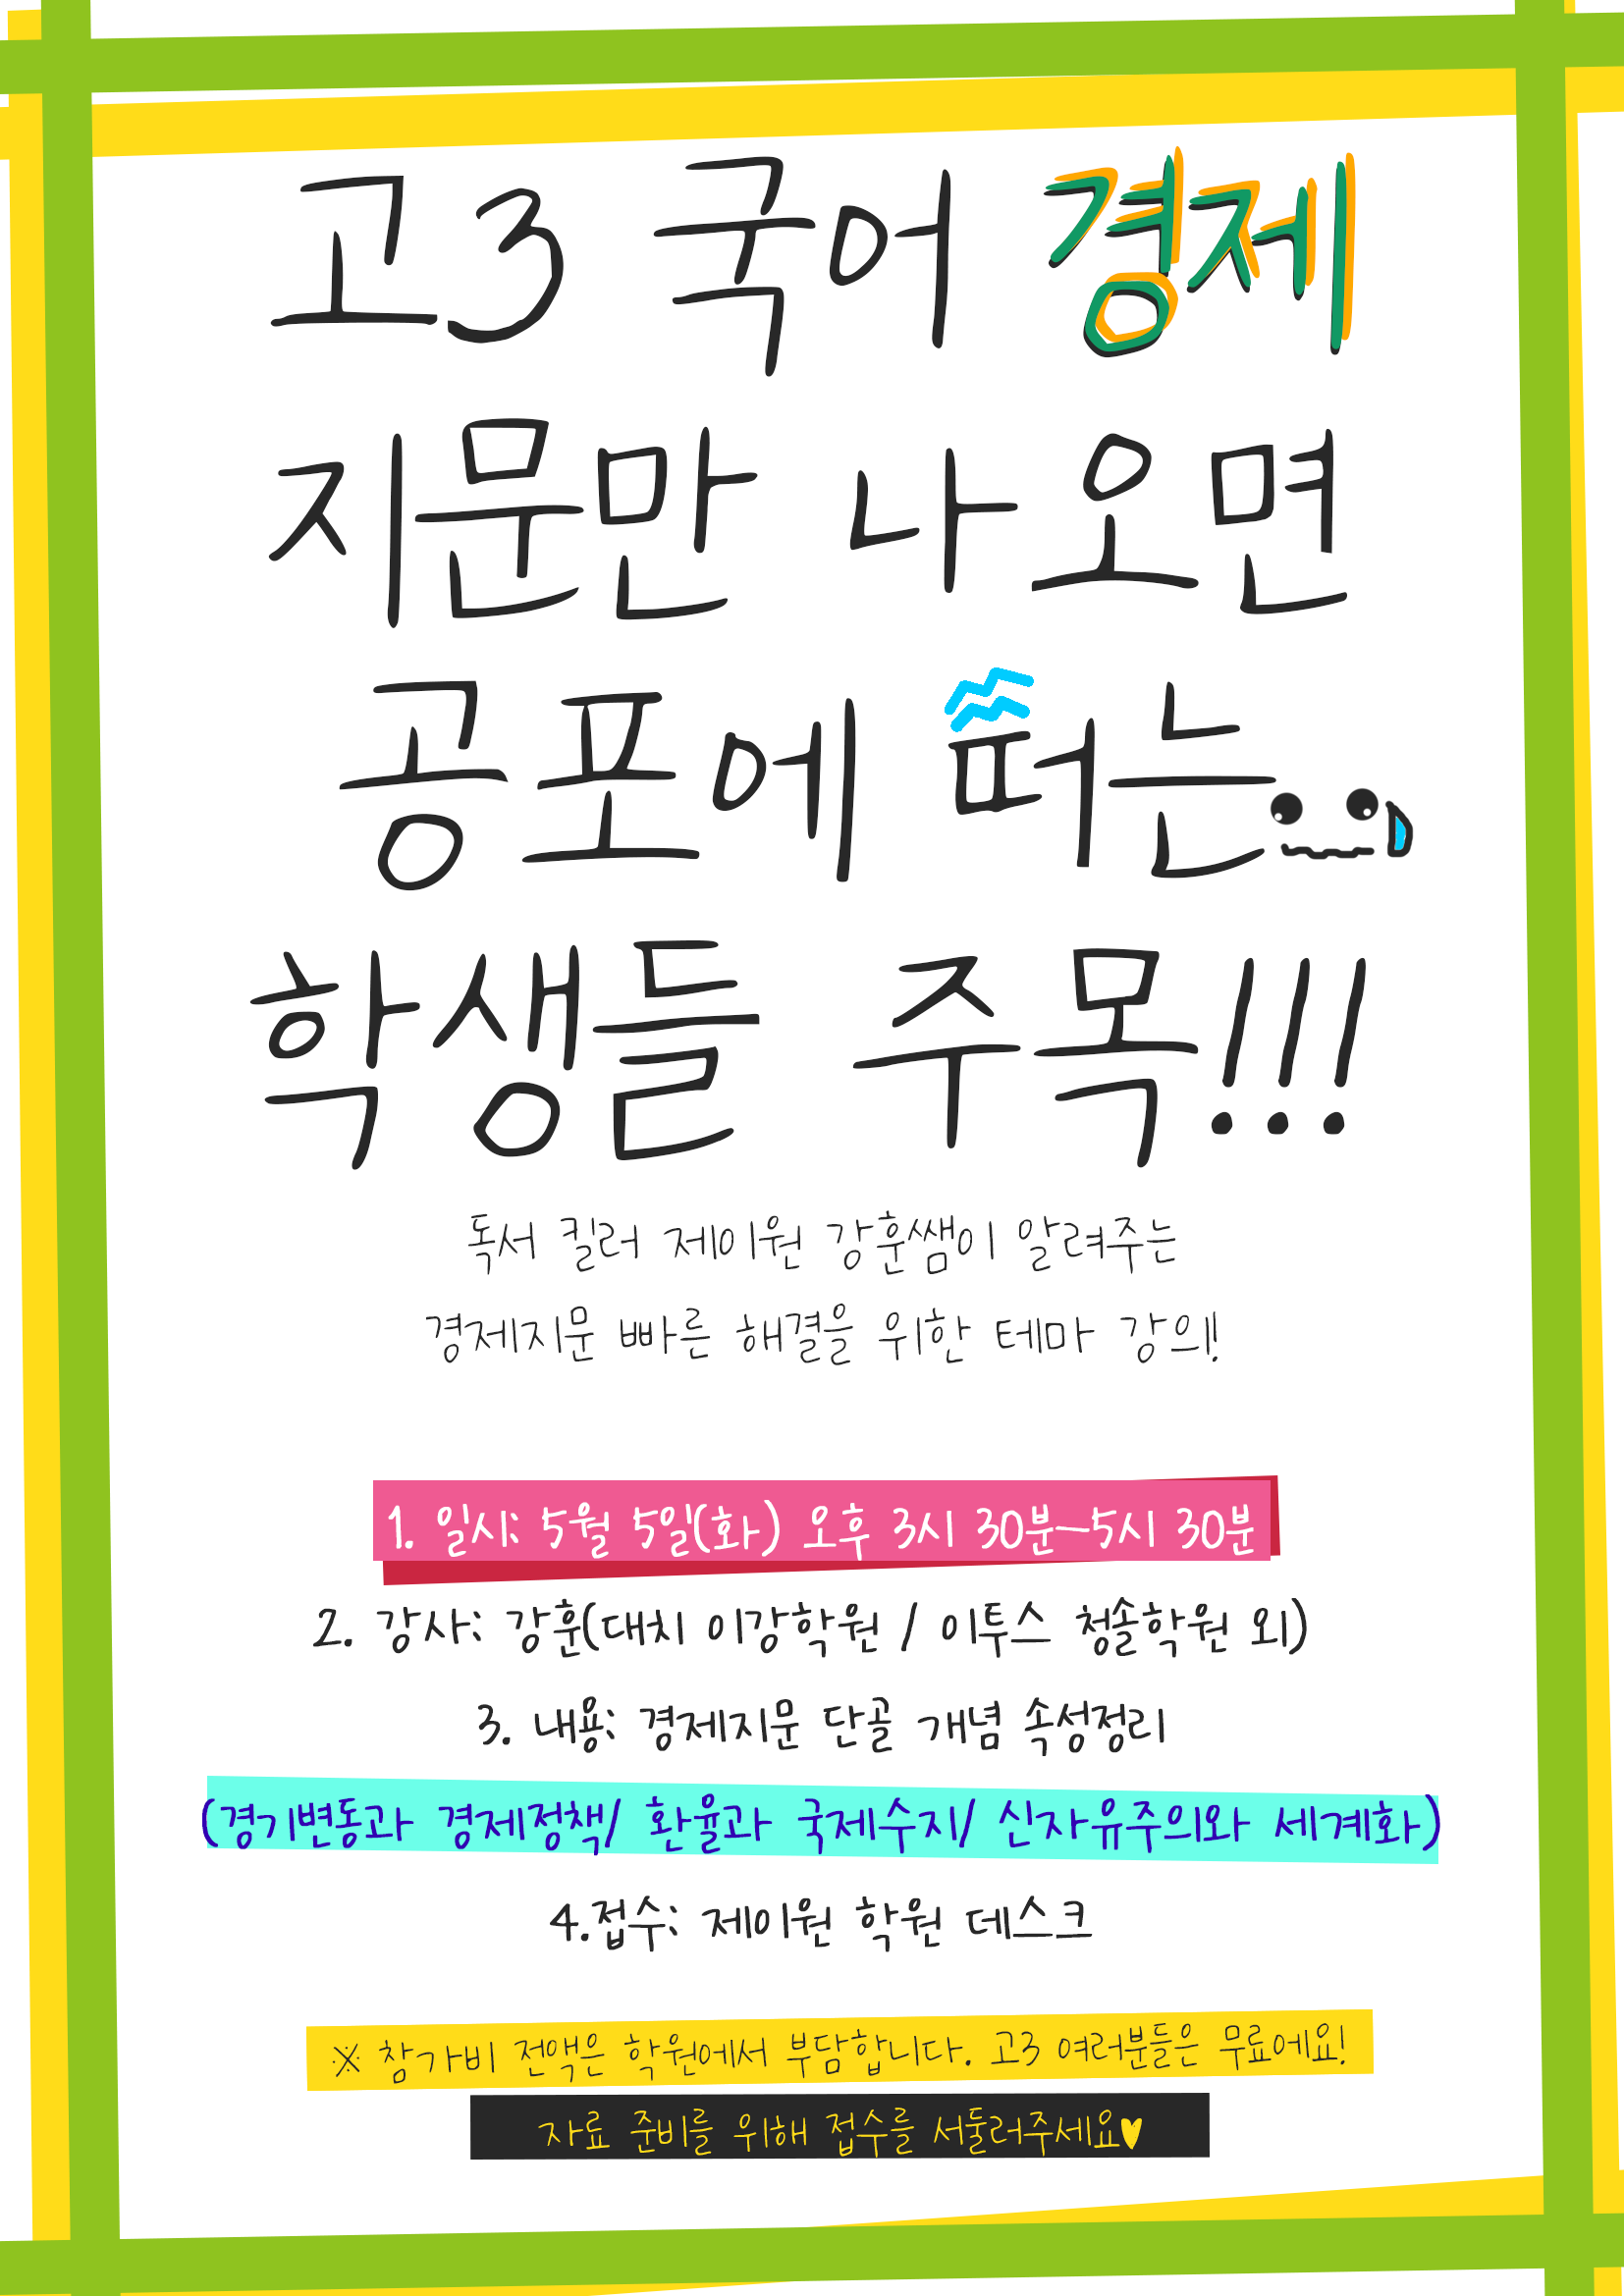 고3 국어 경제
지문만 나오면
공포에 떠는..
학생들 주목!!!
독서 킬러 제이원 강훈쌤이 알려주는
경제지문 빠른 해결을 위한 테마 강의!
1. 일시: 5월 5일(화) 오후 3시 30분-5시 30분
2. 강사: 강훈(대치 이강학원 / 이투스 청솔학원 외)
3. 내용: 경제지문 단골 개념 속성정리
(경기변동과 경제정책/ 환율과 국제수지/ 신자유주의와 세계화)
4.접수: 제이원 학원 데스크
※ 참가비 전액은 학원에서 부담합니다. 고3 여러분들은 무료에요!
자료 준비를 위해 접수를 서둘러주세요♥